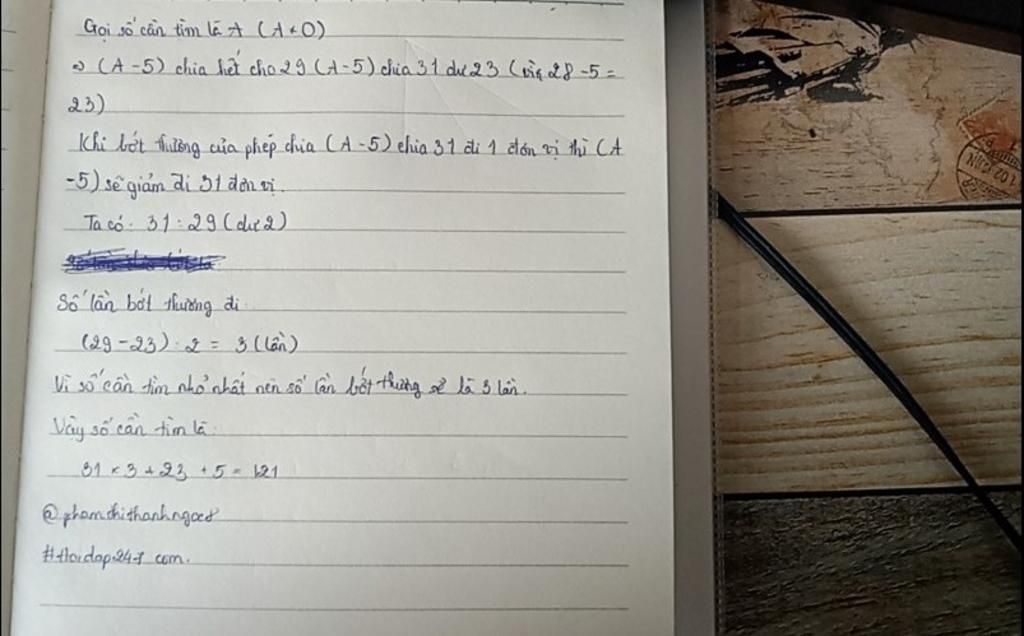 Gọi số cần tìm là A (A < 0)
=> (A - 5) chia hết cho 29 (A - 5) chia 31 dư 23 (vì 28 - 5 =
23)
Khi bớt thương của phép chia (A - 5) chia 31 đi 1 đơn vị thì (A
- 5) sẽ giảm đi 31 đơn vị.
Ta có: 31 : 29 (dư 2)
Số lần bớt thương đi:
(29 - 23) : 2 = 3 (lần)
Vì số cần tìm nhỏ nhất nên số lần bớt thương là 3 lần.
Vậy số cần tìm là:
31 x 3 + 23 + 5 = 121
@phamthithanhngoc8
#Hoidap247.com.